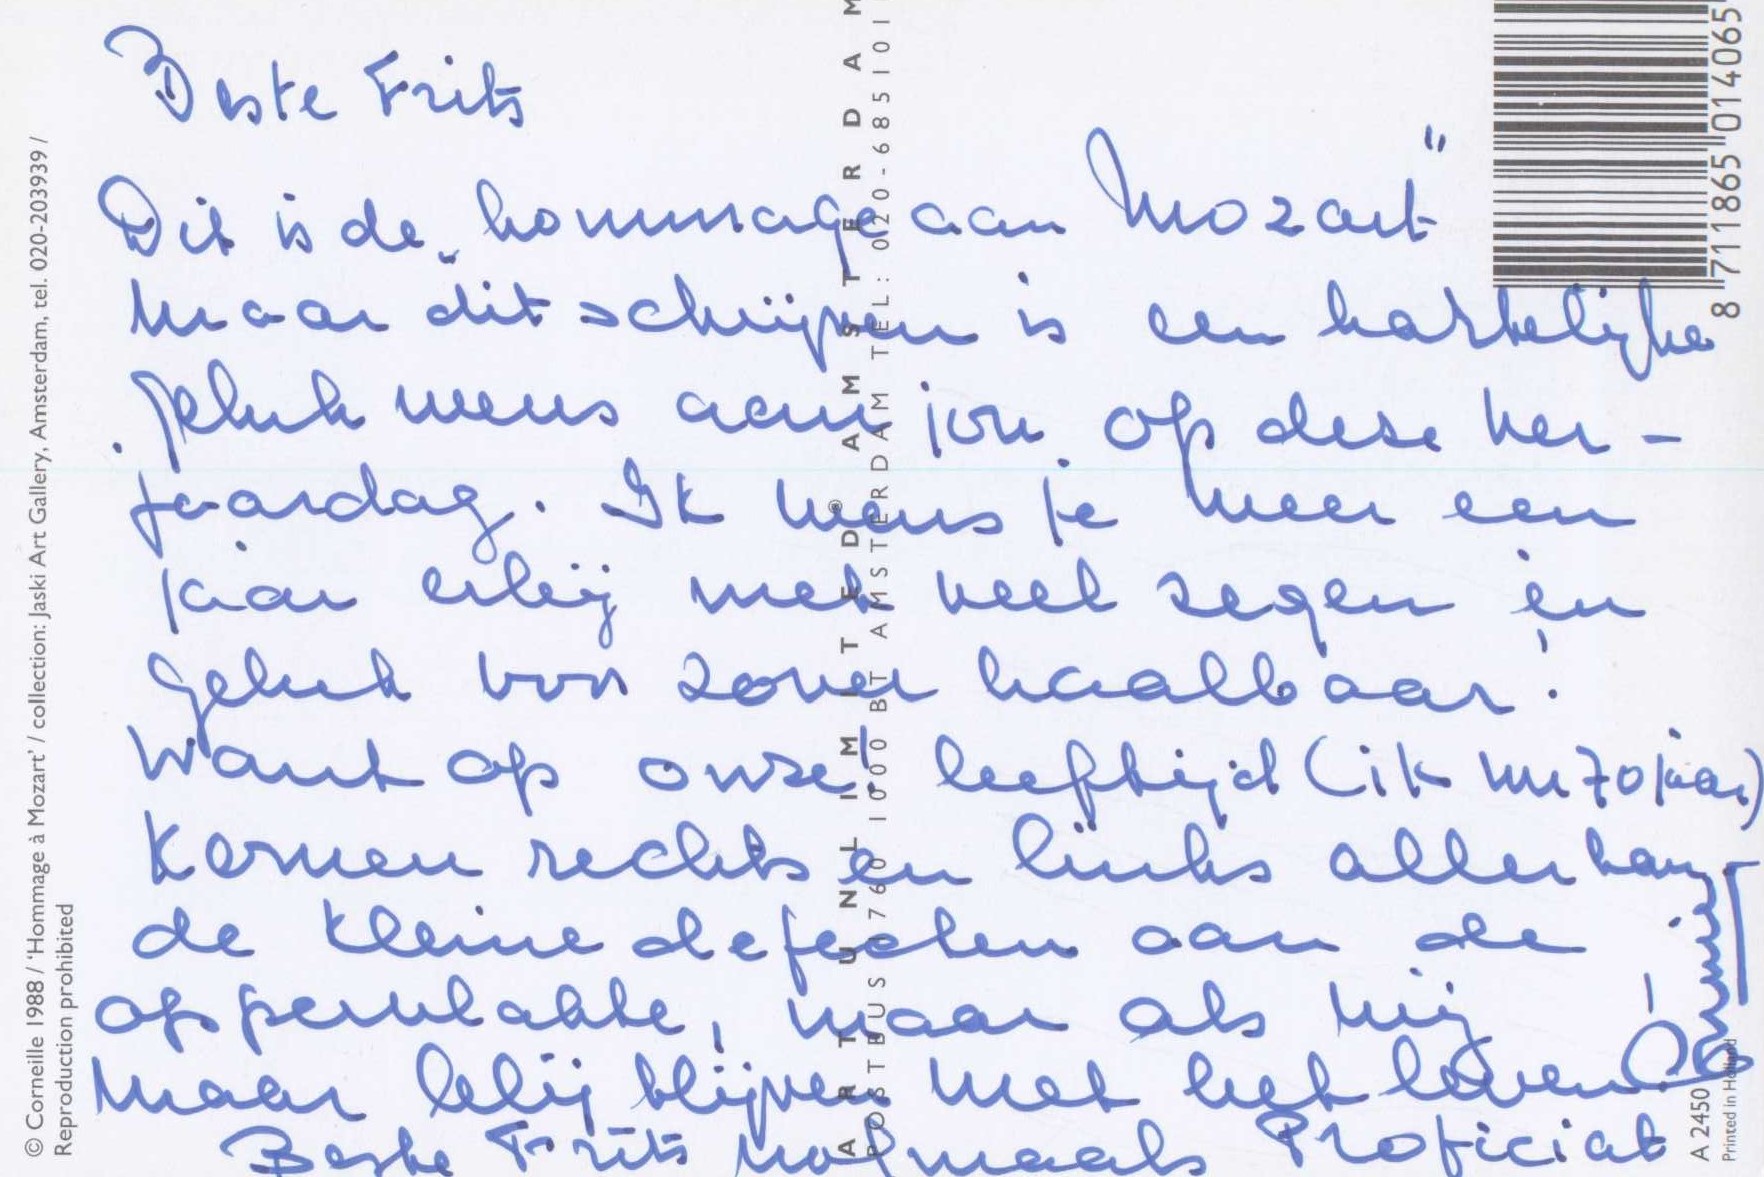 Beste Frits
Dit is de „hommage aan Mozart"
maar dit schrijven is een hartelijke
gelukwens aan jou op deze ver-
jaardag. Ik wens je weer een
jaar erbij met veel zegen en
geluk voor zover haalbaar!
Want op onze leeftijd (ik nu 70 jaar)
komen rechts en links allerhan
de kleine defecten aan de
oppervlakte, maar als wij
maar blij blijven met het leven!
Beste Frits nogmaals Proficiat
© Corneille 1988 / 'Hommage à Mozart' / collection: Jaski Art Gallery, Amsterdam, tel. 020-203939 /
Reproduction prohibited
ART UNLIMITED® AMSTERDAM
POSTBUS 1760 1000 BT AMSTERDAM TEL: 020-685101
8 711865 014065
A 2450
Printed in Holland